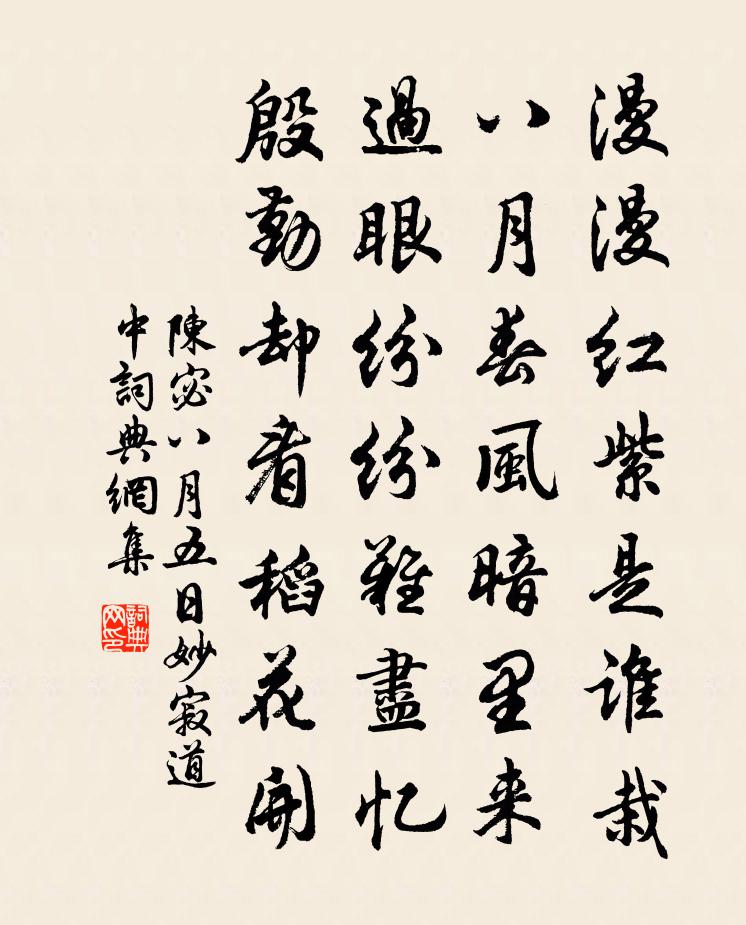 漫漫紅紫是誰栽
八月春風暗里来
過眼紛紛難盡忆
殷勤却看稻花開
陳宓八月五日妙寂道
中詞典網集
詞典
网印